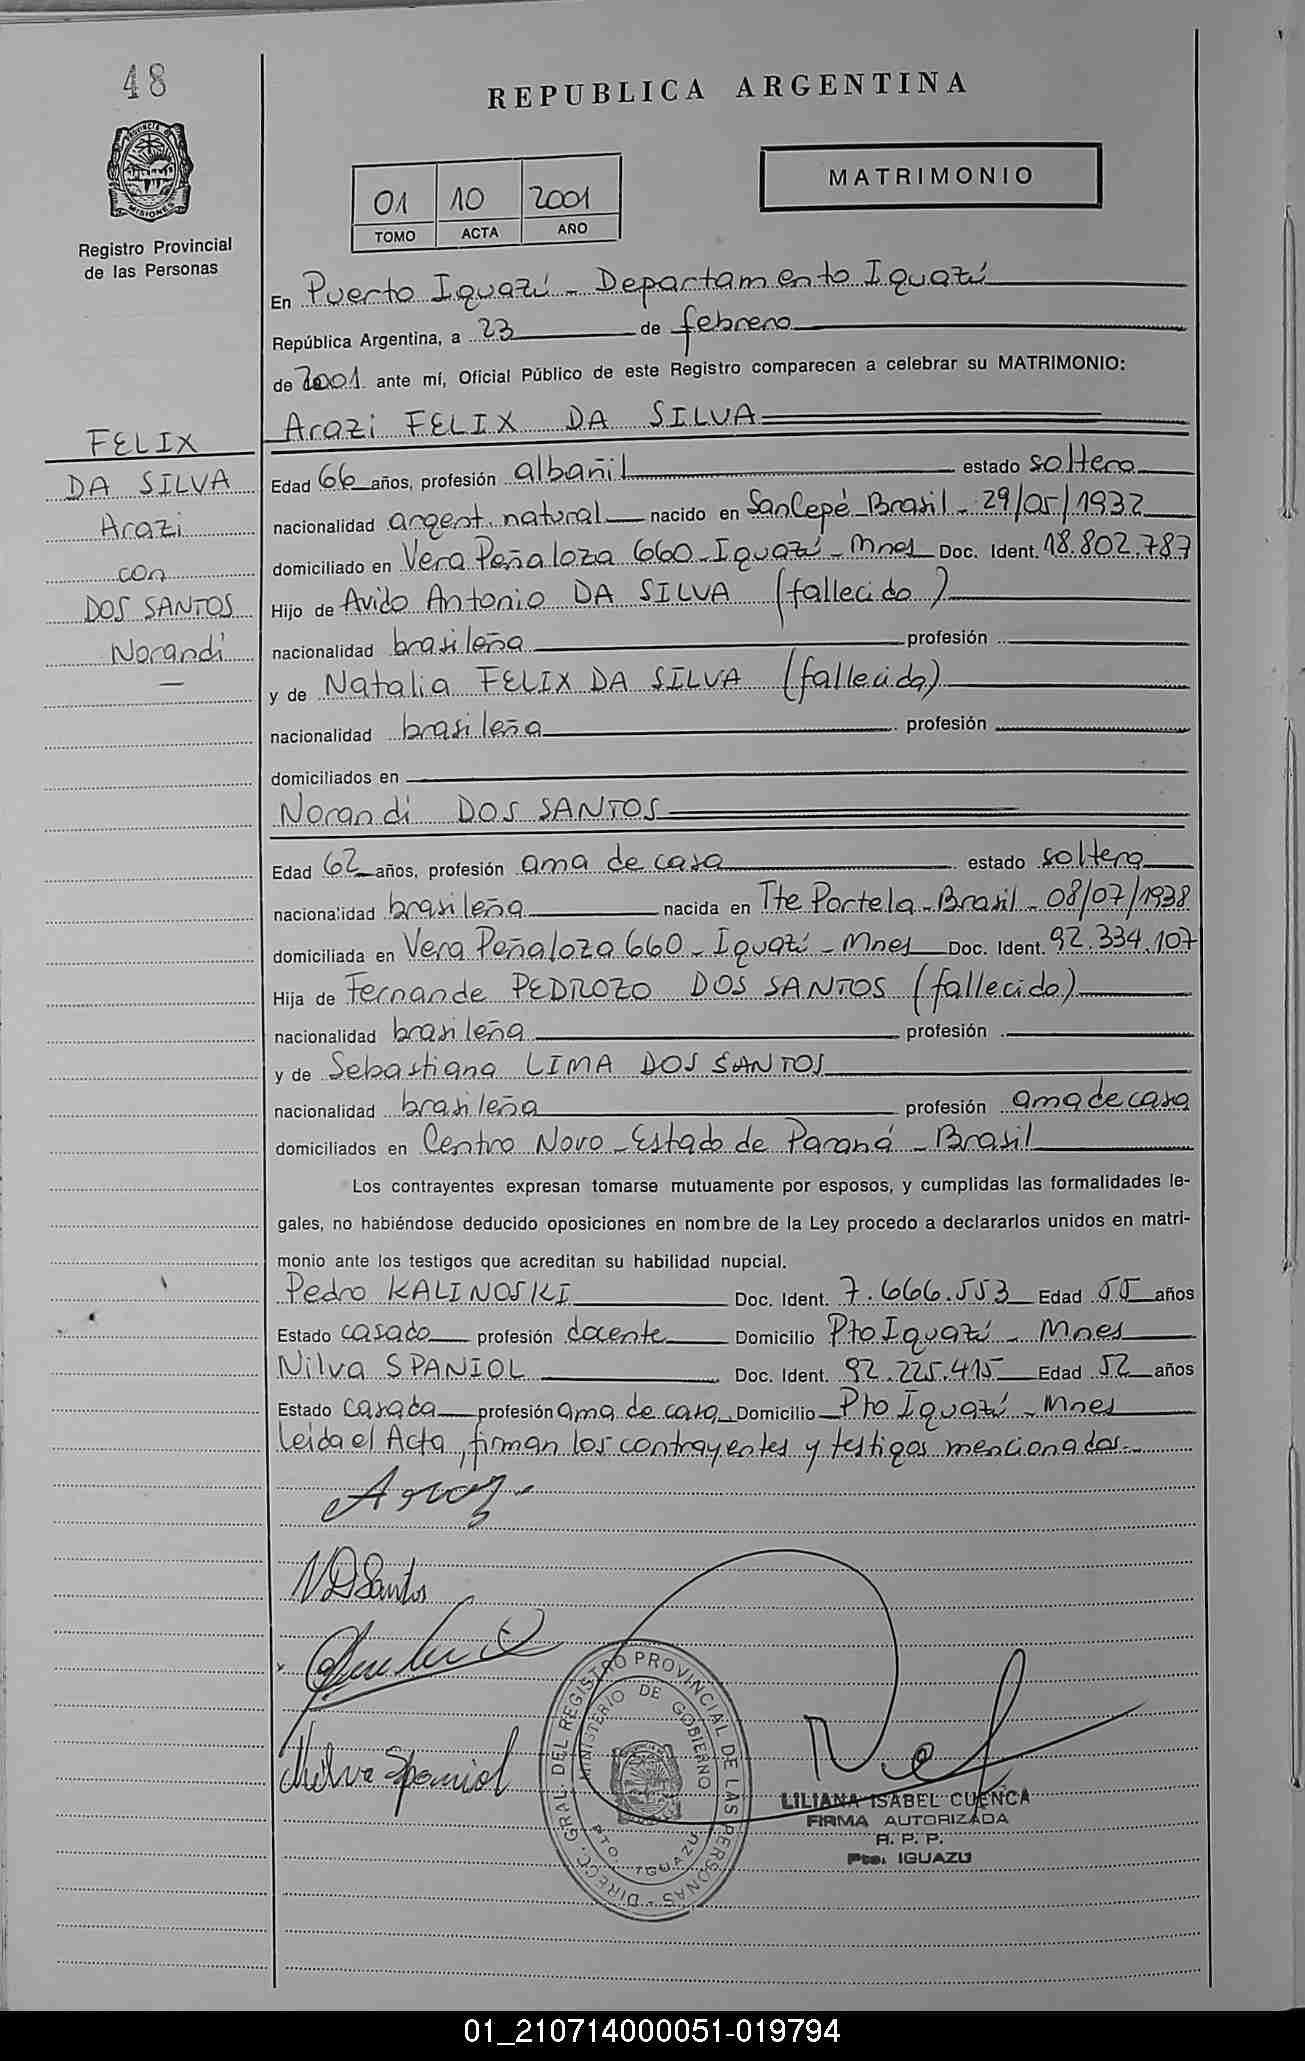 48
REPUBLICA ARGENTINA
PROVINCIA DE
MISIONES
MATRIMONIO
01 10 2001
TOMO ACTA AÑO
Registro Provincial
de las Personas
En Puerto Iguazú - Departamento Iguazú
República Argentina, a 23 de febrero
de 2001 ante mí, Oficial Público de este Registro comparecen a celebrar su MATRIMONIO:
FELIX
DA SILVA
Arazi
con
DOS SANTOS
Norandi
Arazi FELIX DA SILVA
Edad 66 años, profesión albañil estado soltero
nacionalidad argent. natural nacido en SanCepé - Brasil - 29/05/1932
domiciliado en Vera Peñaloza 660 - Iguazú - Mnes Doc. Ident. 18.802.787
Hijo de Avido Antonio DA SILVA (fallecido)
nacionalidad brasileña profesión
y de Natalia FELIX DA SILVA (fallecida)
nacionalidad brasileña profesión
domiciliados en
Norandi DOS SANTOS
Edad 62 años, profesión ama de casa estado soltera
nacionalidad brasileña nacida en Tte Portela - Brasil - 08/07/1938
domiciliada en Vera Peñaloza 660 - Iguazú - Mnes Doc. Ident. 92.334.107
Hija de Fernande PEDROZO DOS SANTOS (fallecido)
nacionalidad brasileña profesión
y de Sebastiana LIMA DOS SANTOS
nacionalidad brasileña profesión ama de casa
domiciliados en Centro Novo - Estado de Paraná - Brasil
Los contrayentes expresan tomarse mutuamente por esposos, y cumplidas las formalidades le-
gales, no habiéndose deducido oposiciones en nombre de la Ley procedo a declararlos unidos en matri-
monio ante los testigos que acreditan su habilidad nupcial.
Pedro KALINOSKI Doc. Ident. 7.666.553 Edad 55 años
Estado casado profesión docente Domicilio Pto Iguazú - Mnes
Nilva SPANIOL Doc. Ident. 92.225.415 Edad 52 años
Estado casada profesión ama de casa Domicilio Pto Iguazú - Mnes
Leida el Acta, firman los contrayentes y testigos mencionados.-
NDSantos
DIRECC. GRAL. DEL REGISTRO PROVINCIAL DE LAS PERSONAS -
MINISTERIO DE GOBIERNO
PTO. IGUAZU
LILIANA ISABEL CUENCA
FIRMA AUTORIZADA
R. P. P.
Pto. IGUAZU
01_210714000051-019794